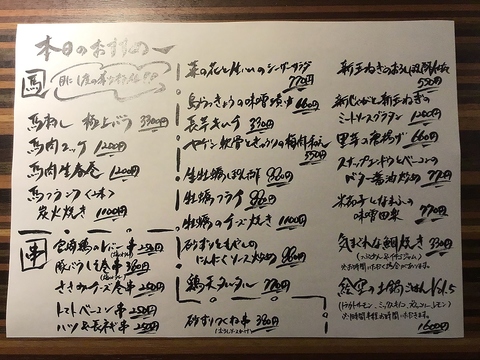 本日のおすすめ
馬
馬刺し 極上バラ 3300円
馬肉ユッケ 1200円
馬肉生春巻 1200円
馬フランク(2本)
炭火焼き 1100円
串
宮崎鶏のレバー串 250円
豚バラしそ巻串 380円
ささみチーズ巻串 250円
トマトベーコン串 250円
ハツと長ネギ串 250円
菜の花と生ハムのシーザーサラダ
770円
島らっきょうの味噌 660円
長芋キムチ 330円
ヤゲン軟骨ときゅうりの梅肉和え
550円
生牡蠣 ポン酢 880円
牡蠣フライ 880円
牡蠣のチーズ焼き 1100円
砂ずりともやしの
にんにくソース炒め 880円
鶏天タルタル 770円
砂ずりつくね串 380円
新玉ねぎの
550円
新じゃがと新玉ねぎの
ミートソースグラタン 1200円
里芋の唐揚げ 660円
スナップエンドウとベーコンの
バター醤油炒め 770円
米茄子となまふの
味噌田楽 770円
気まぐれな鯛焼き 330円
の土鍋ごはん Vol.5
1600円